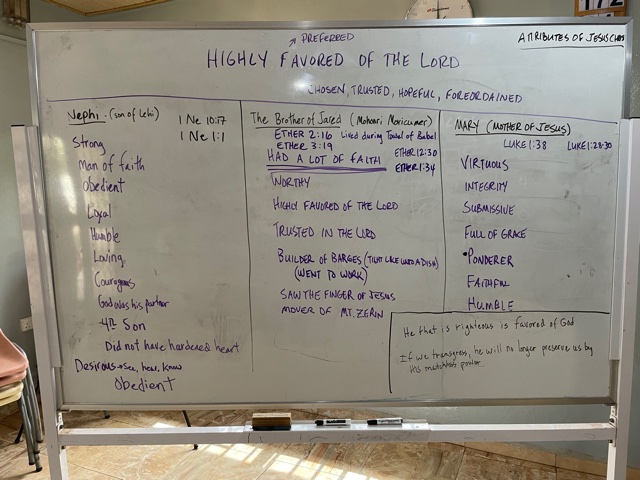 172
PREFERRED
ATTRIBUTES OF JESUS CHRIST
HIGHLY FAVORED OF THE LORD
CHOSEN, TRUSTED, HOPEFUL, FOREORDAINED
Nephi. (son of Lehi) 1 Ne 10:17
1 Ne 1:1
Strong
Man of faith
Obedient
Loyal
Humble
Loving
Courageous
God was his partner
4th Son
Did not have hardened heart
Desirous → See, hear, know
Obedient
The Brother of Jared (Mohonri Moricumer)
ETHER 2:16 Lived during Towel of Babel
ETHER 3:19
HAD A LOT OF FAITH ETHER 12:30
ETHER 1:34
WORTHY
HIGHLY FAVORED OF THE LORD
TRUSTED IN THE LORD
BUILDER OF BARGES (TIGHT LIKE UNTO A DISH)
(WENT TO WORK)
SAW THE FINGER OF JESUS
MOVER OF MT. ZERIN
MARY (MOTHER OF JESUS)
LUKE 1:38 LUKE 1:28-30
VIRTUOUS
INTEGRITY
SUBMISSIVE
FULL OF GRACE
PONDERER
FAITHFUL
HUMBLE
He that is righteous is favored of God
If we transgress, he will no longer preserve us by
His matchless power